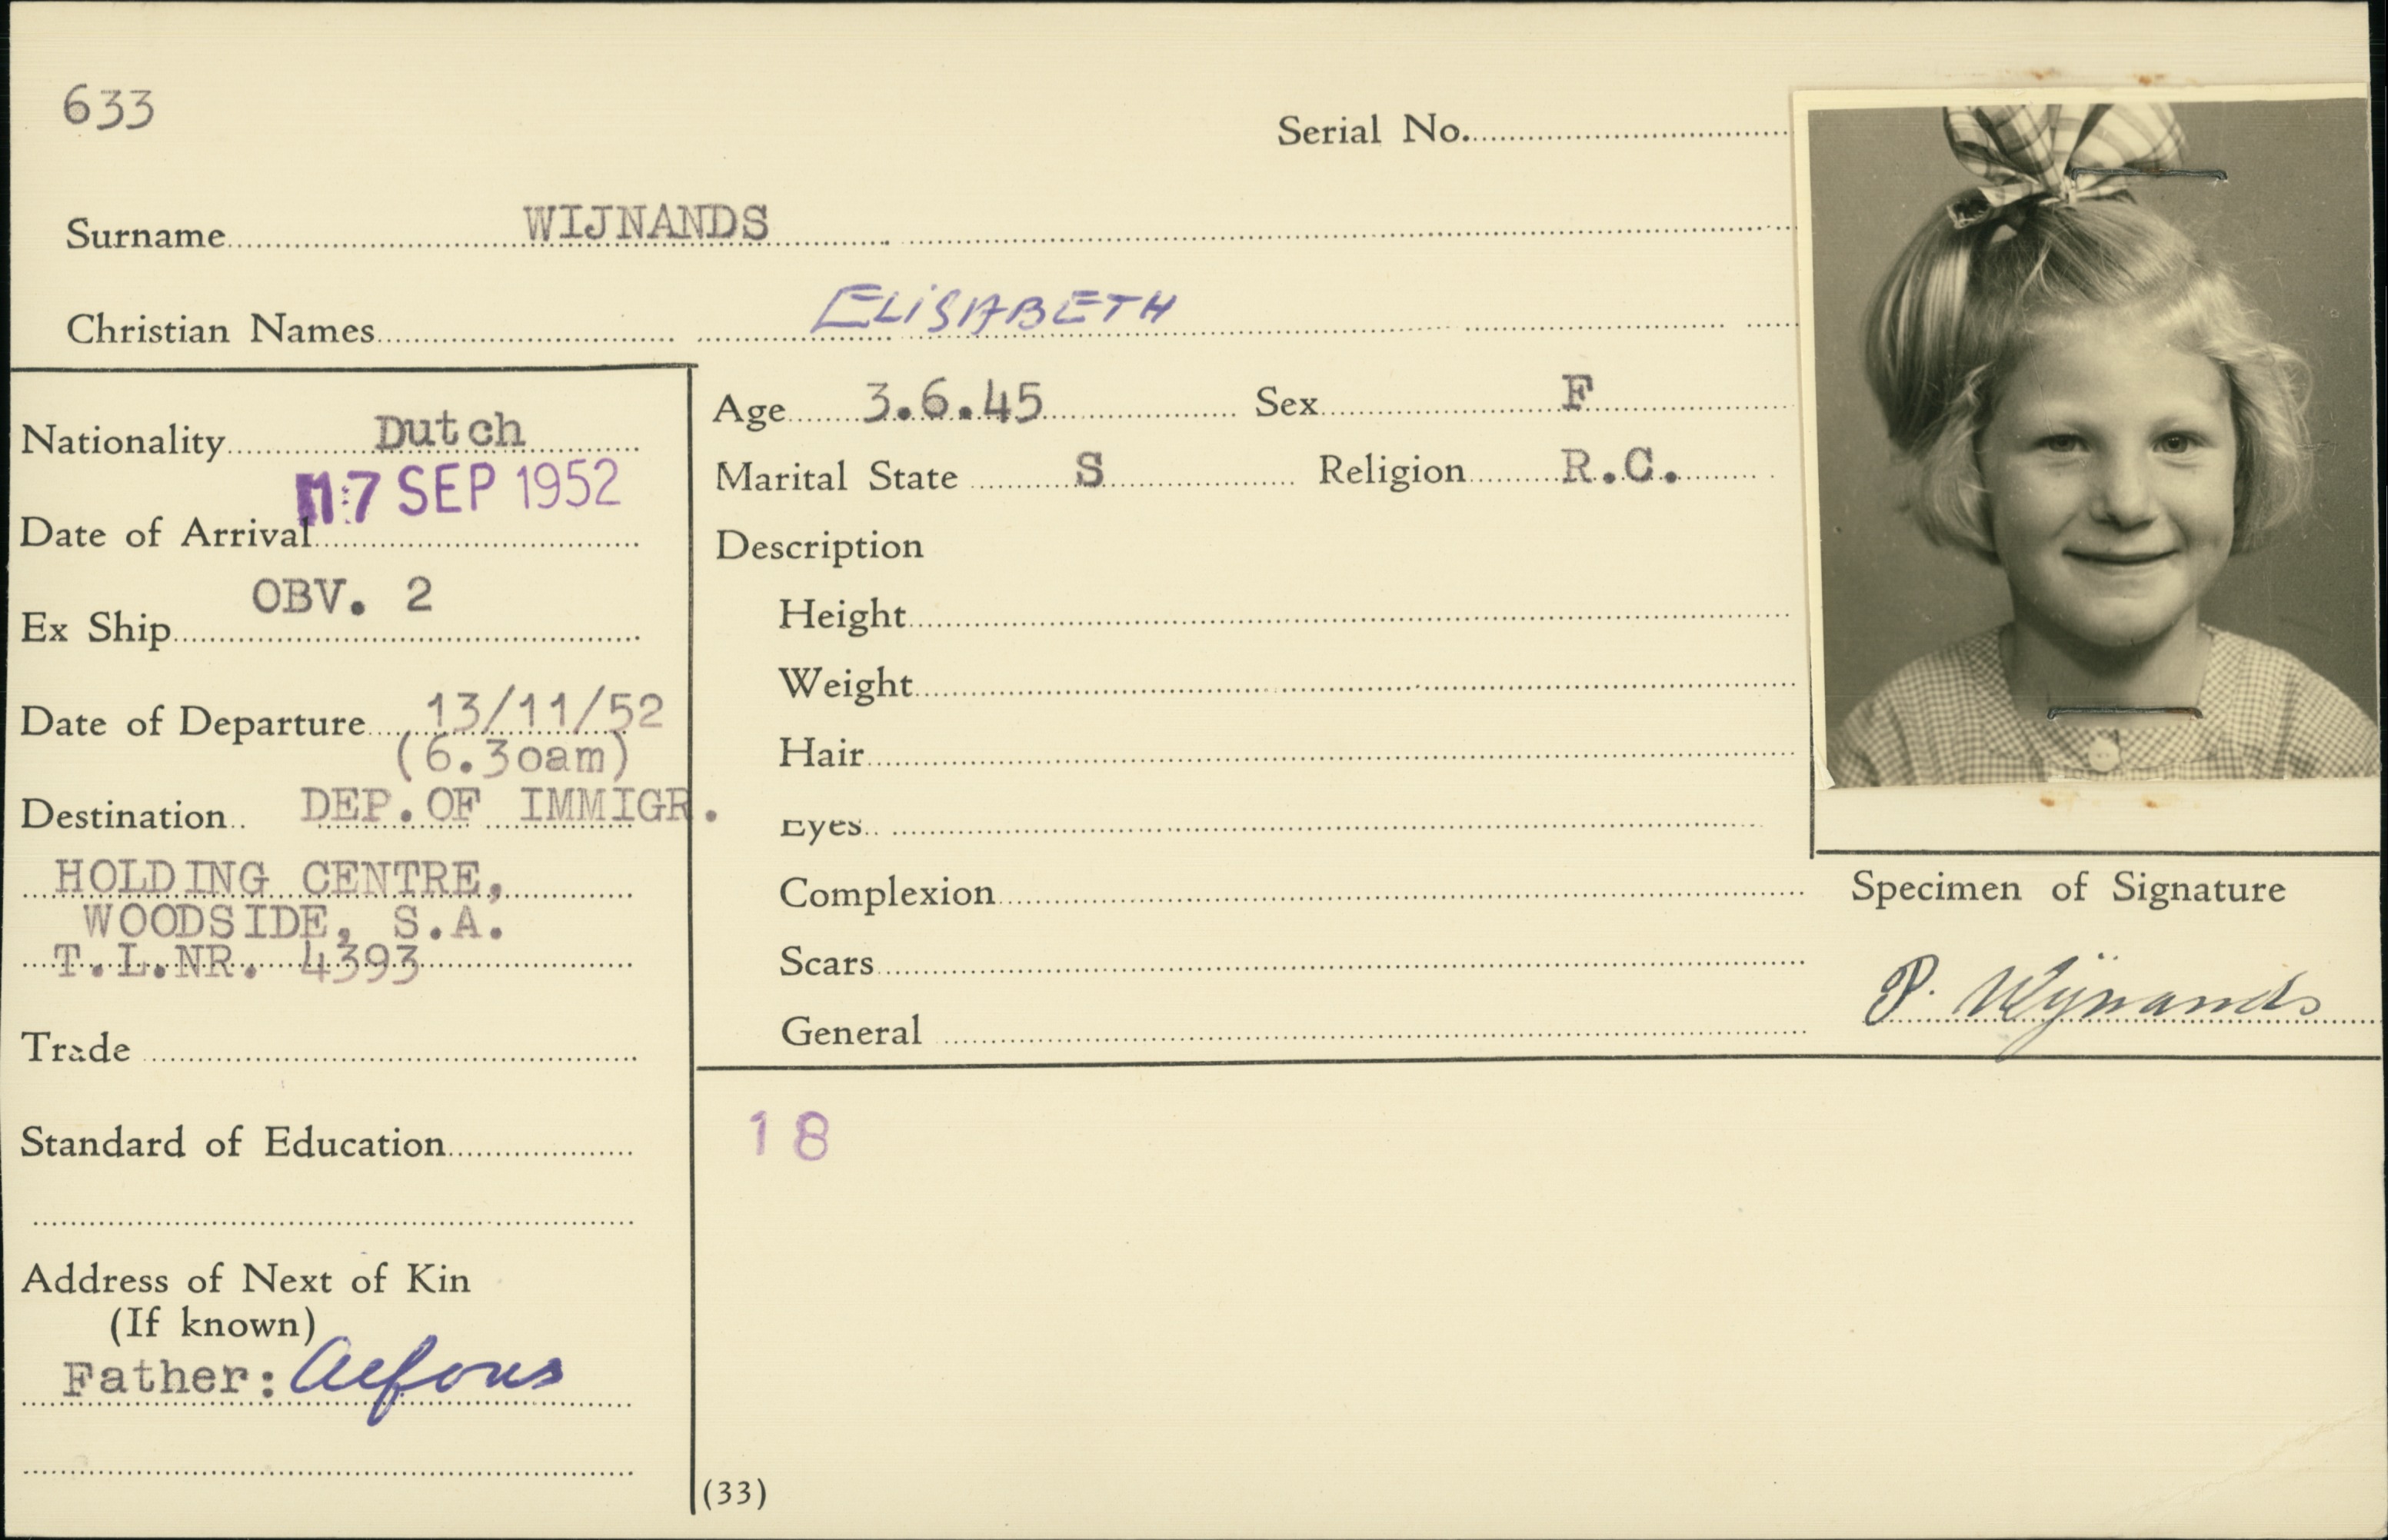 633
Serial No.
Surname WIJNANDS
Christian Names ELISABETH
Nationality Dutch
17 SEP 1952
Date of Arrival
OBV. 2
Ex Ship
Date of Departure 13/11/52
(6.3oam)
Destination DEP.OF IMMIGR.
HOLDING CENTRE,
WOODSIDE, S.A.
T.L.NR. 4393
Trade
Standard of Education
Address of Next of Kin
(If known)
Father: Alfons
Age 3.6.45 Sex F
Marital State S Religion R.C.
Description
Height
Weight
Hair
Eyes
Complexion
Scars
General
Specimen of Signature
P. Wijnands
18
(33)